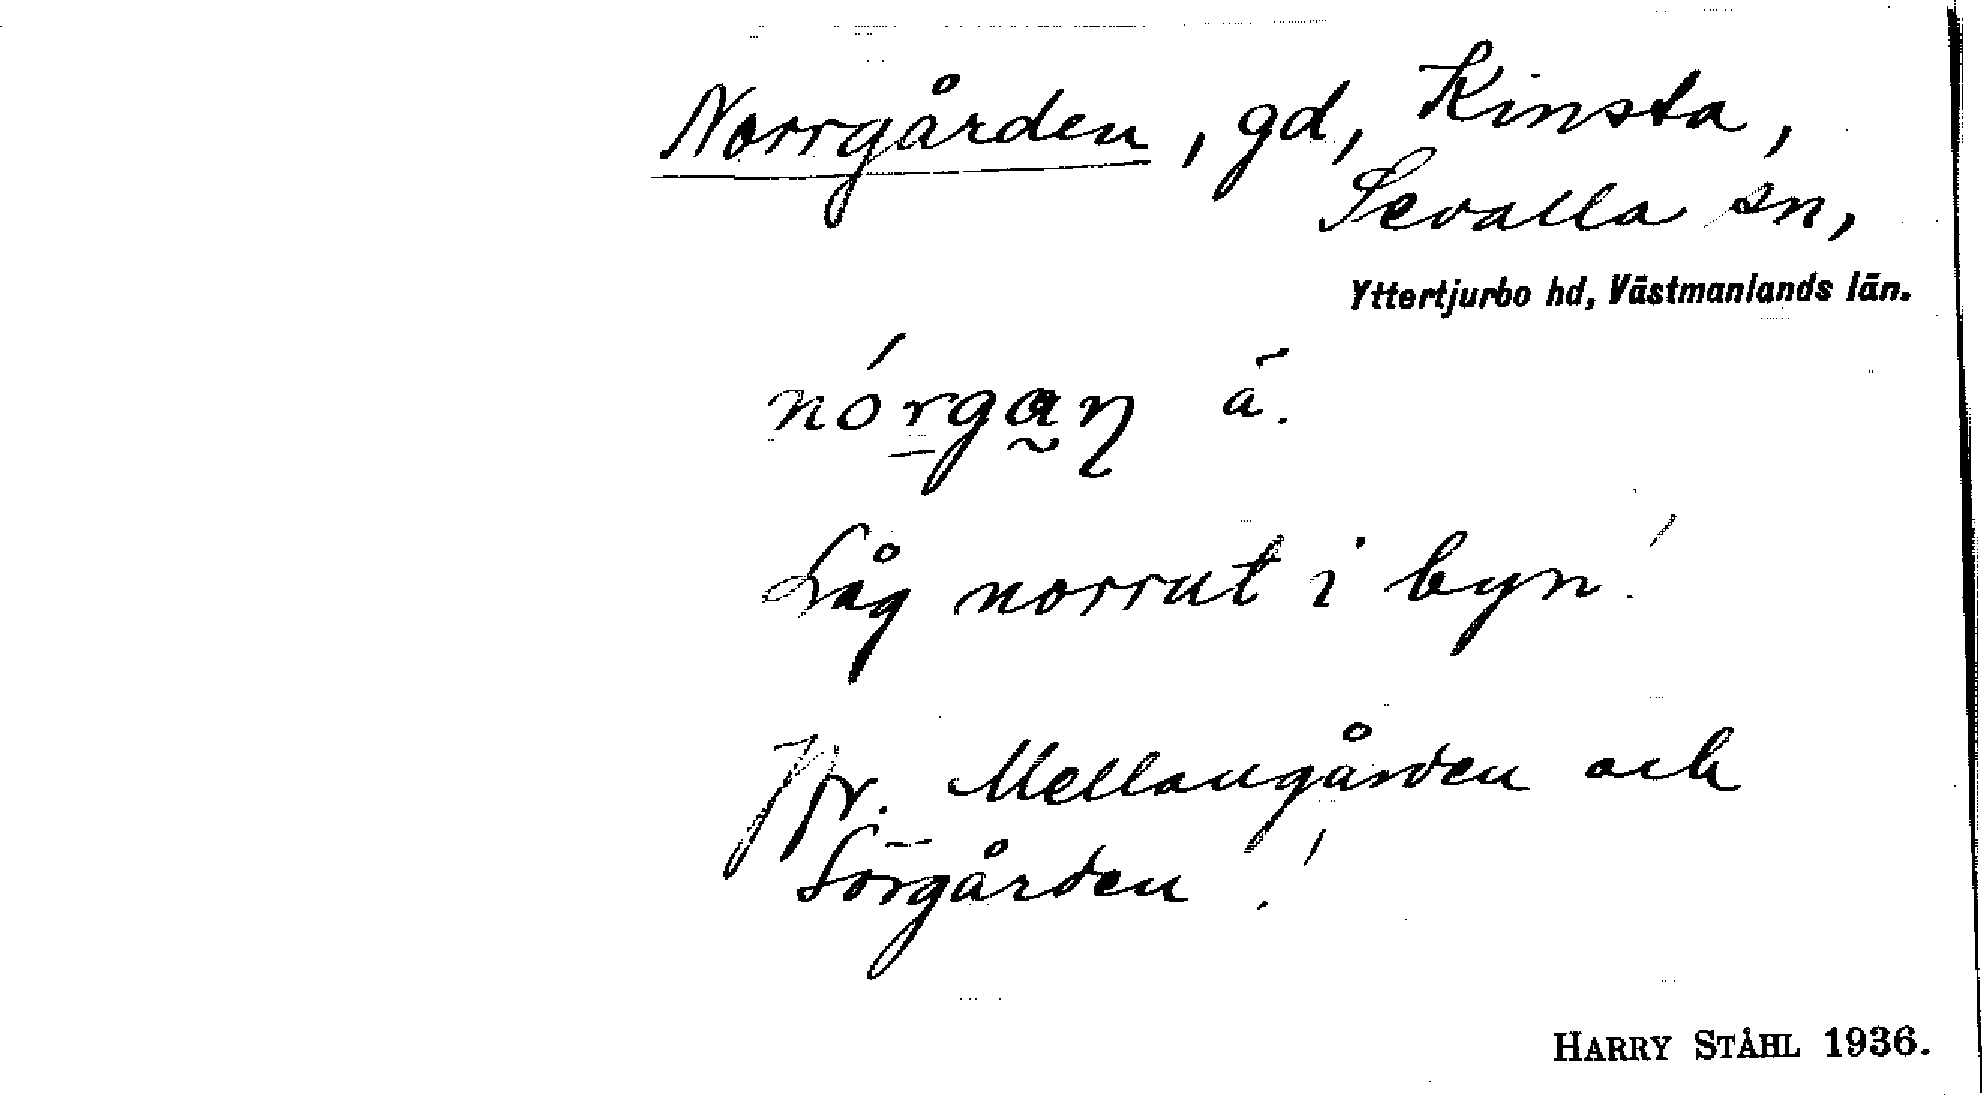 Norrgården, gd, Kinsta,
Sevalla sn,
Yttertjurbo hd, Västmanlands län.
nórgaɳ ä.
Låg norrut i byn!
Jfr. Mellangården och
Sörgården!
HARRY STÅHL 1936.